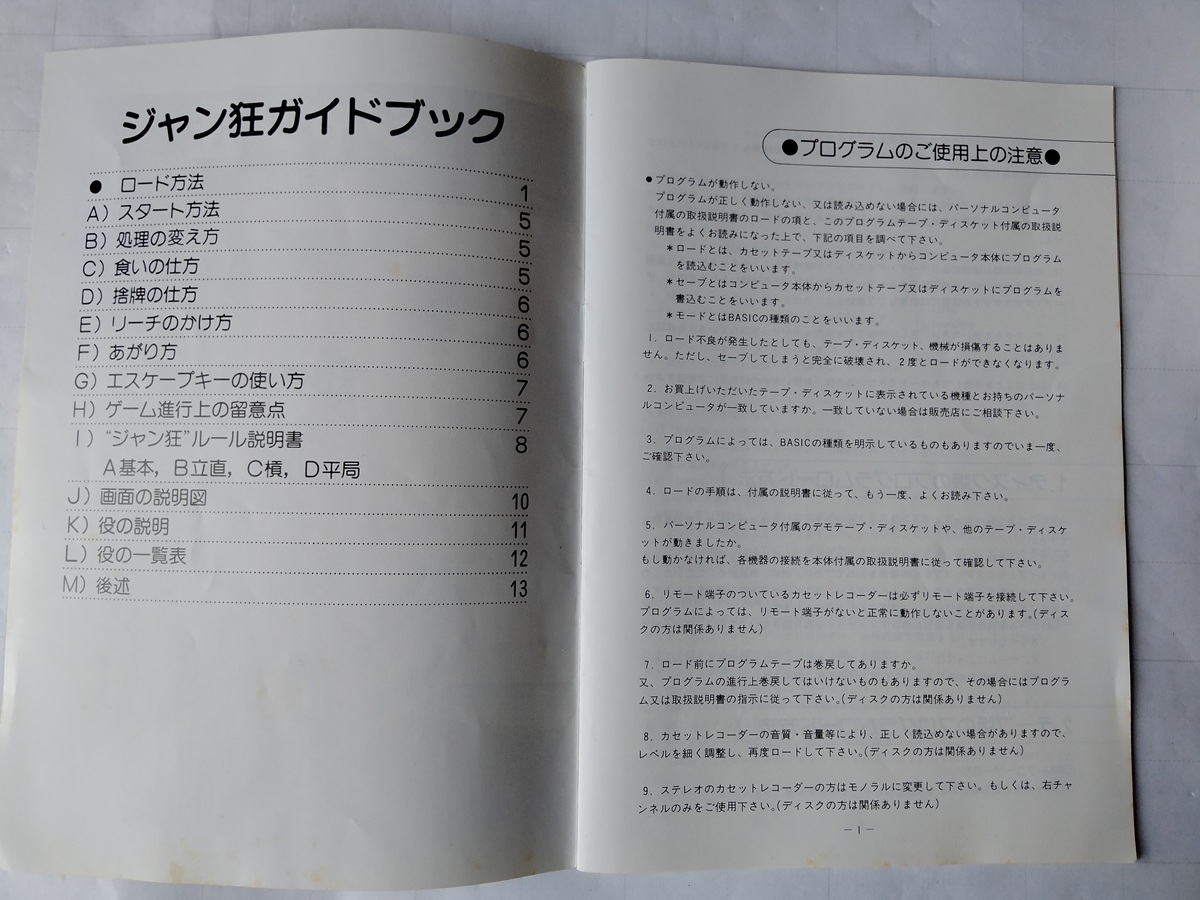 ジャン狂ガイドブック
● ロード方法 1
A）スタート方法 5
B）処理の変え方 5
C）食いの仕方 5
D）捨牌の仕方 6
E）リーチのかけ方 6
F）あがり方 6
G）エスケープキーの使い方 7
H）ゲーム進行上の留意点 7
I）“ジャン狂”ルール説明書 8
A基本，B立直，C槓，D平局
J）画面の説明図 10
K）役の説明 11
L）役の一覧表 12
M）後述 13
●プログラムのご使用上の注意●
●プログラムが動作しない。
プログラムが正しく動作しない、又は読み込めない場合には、パーソナルコンピュータ
付属の取扱説明書のロードの項と、このプログラムテープ・ディスケット付属の取扱説
明書をよくお読みになった上で、下記の項目を調べて下さい。
＊ロードとは、カセットテープ又はディスケットからコンピュータ本体にプログラム
を読込むことをいいます。
＊セーブとはコンピュータ本体からカセットテープ又はディスケットにプログラムを
書込むことをいいます。
＊モードとはBASICの種類のことをいいます。
1．ロード不良が発生したとしても、テープ・ディスケット、機械が損傷することはありま
せん。ただし、セーブしてしまうと完全に破壊され、２度とロードができなくなります。
2．お買上げいただいたテープ・ディスケットに表示されている機種とお持ちのパーソナ
ルコンピュータが一致していますか。一致していない場合は販売店にご相談下さい。
3．プログラムによっては、BASICの種類を明示しているものもありますのでいま一度、
ご確認下さい。
4．ロードの手順は、付属の説明書に従って、もう一度、よくお読み下さい。
5．パーソナルコンピュータ付属のデモテープ・ディスケットや、他のテープ・ディスケ
ットが動きましたか。
もし動かなければ、各機器の接続を本体付属の取扱説明書に従って確認して下さい。
6．リモート端子のついているカセットレコーダーは必ずリモート端子を接続して下さい。
プログラムによっては、リモート端子がないと正常に動作しないことがあります。（ディス
クの方は関係ありません）
7．ロード前にプログラムテープは巻戻してありますか。
又、プログラムの進行上巻戻してはいけないものもありますので、その場合にはプログラ
ム又は取扱説明書の指示に従って下さい。（ディスクの方は関係ありません）
8．カセットレコーダーの音質・音量等により、正しく読込めない場合がありますので、
レベルを細く調整し、再度ロードして下さい。（ディスクの方は関係ありません）
9．ステレオのカセットレコーダーの方はモノラルに変更して下さい。もしくは、右チャ
ンネルのみをご使用下さい。（ディスクの方は関係ありません）
－1－